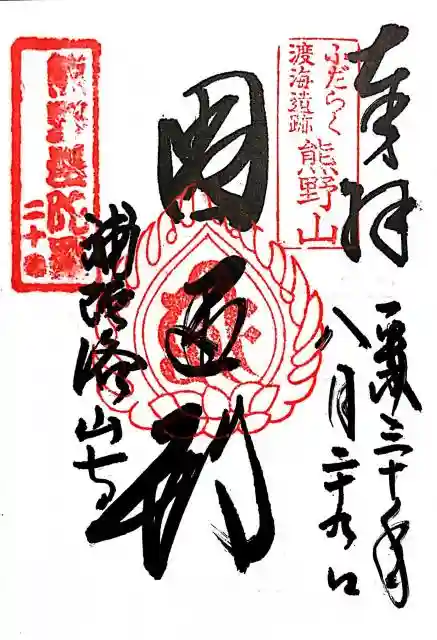 奉拝
平成三十年
八月二十九日
ふだらく
渡海遺跡
熊野山
圓通
補陀洛山寺
熊野
二十番